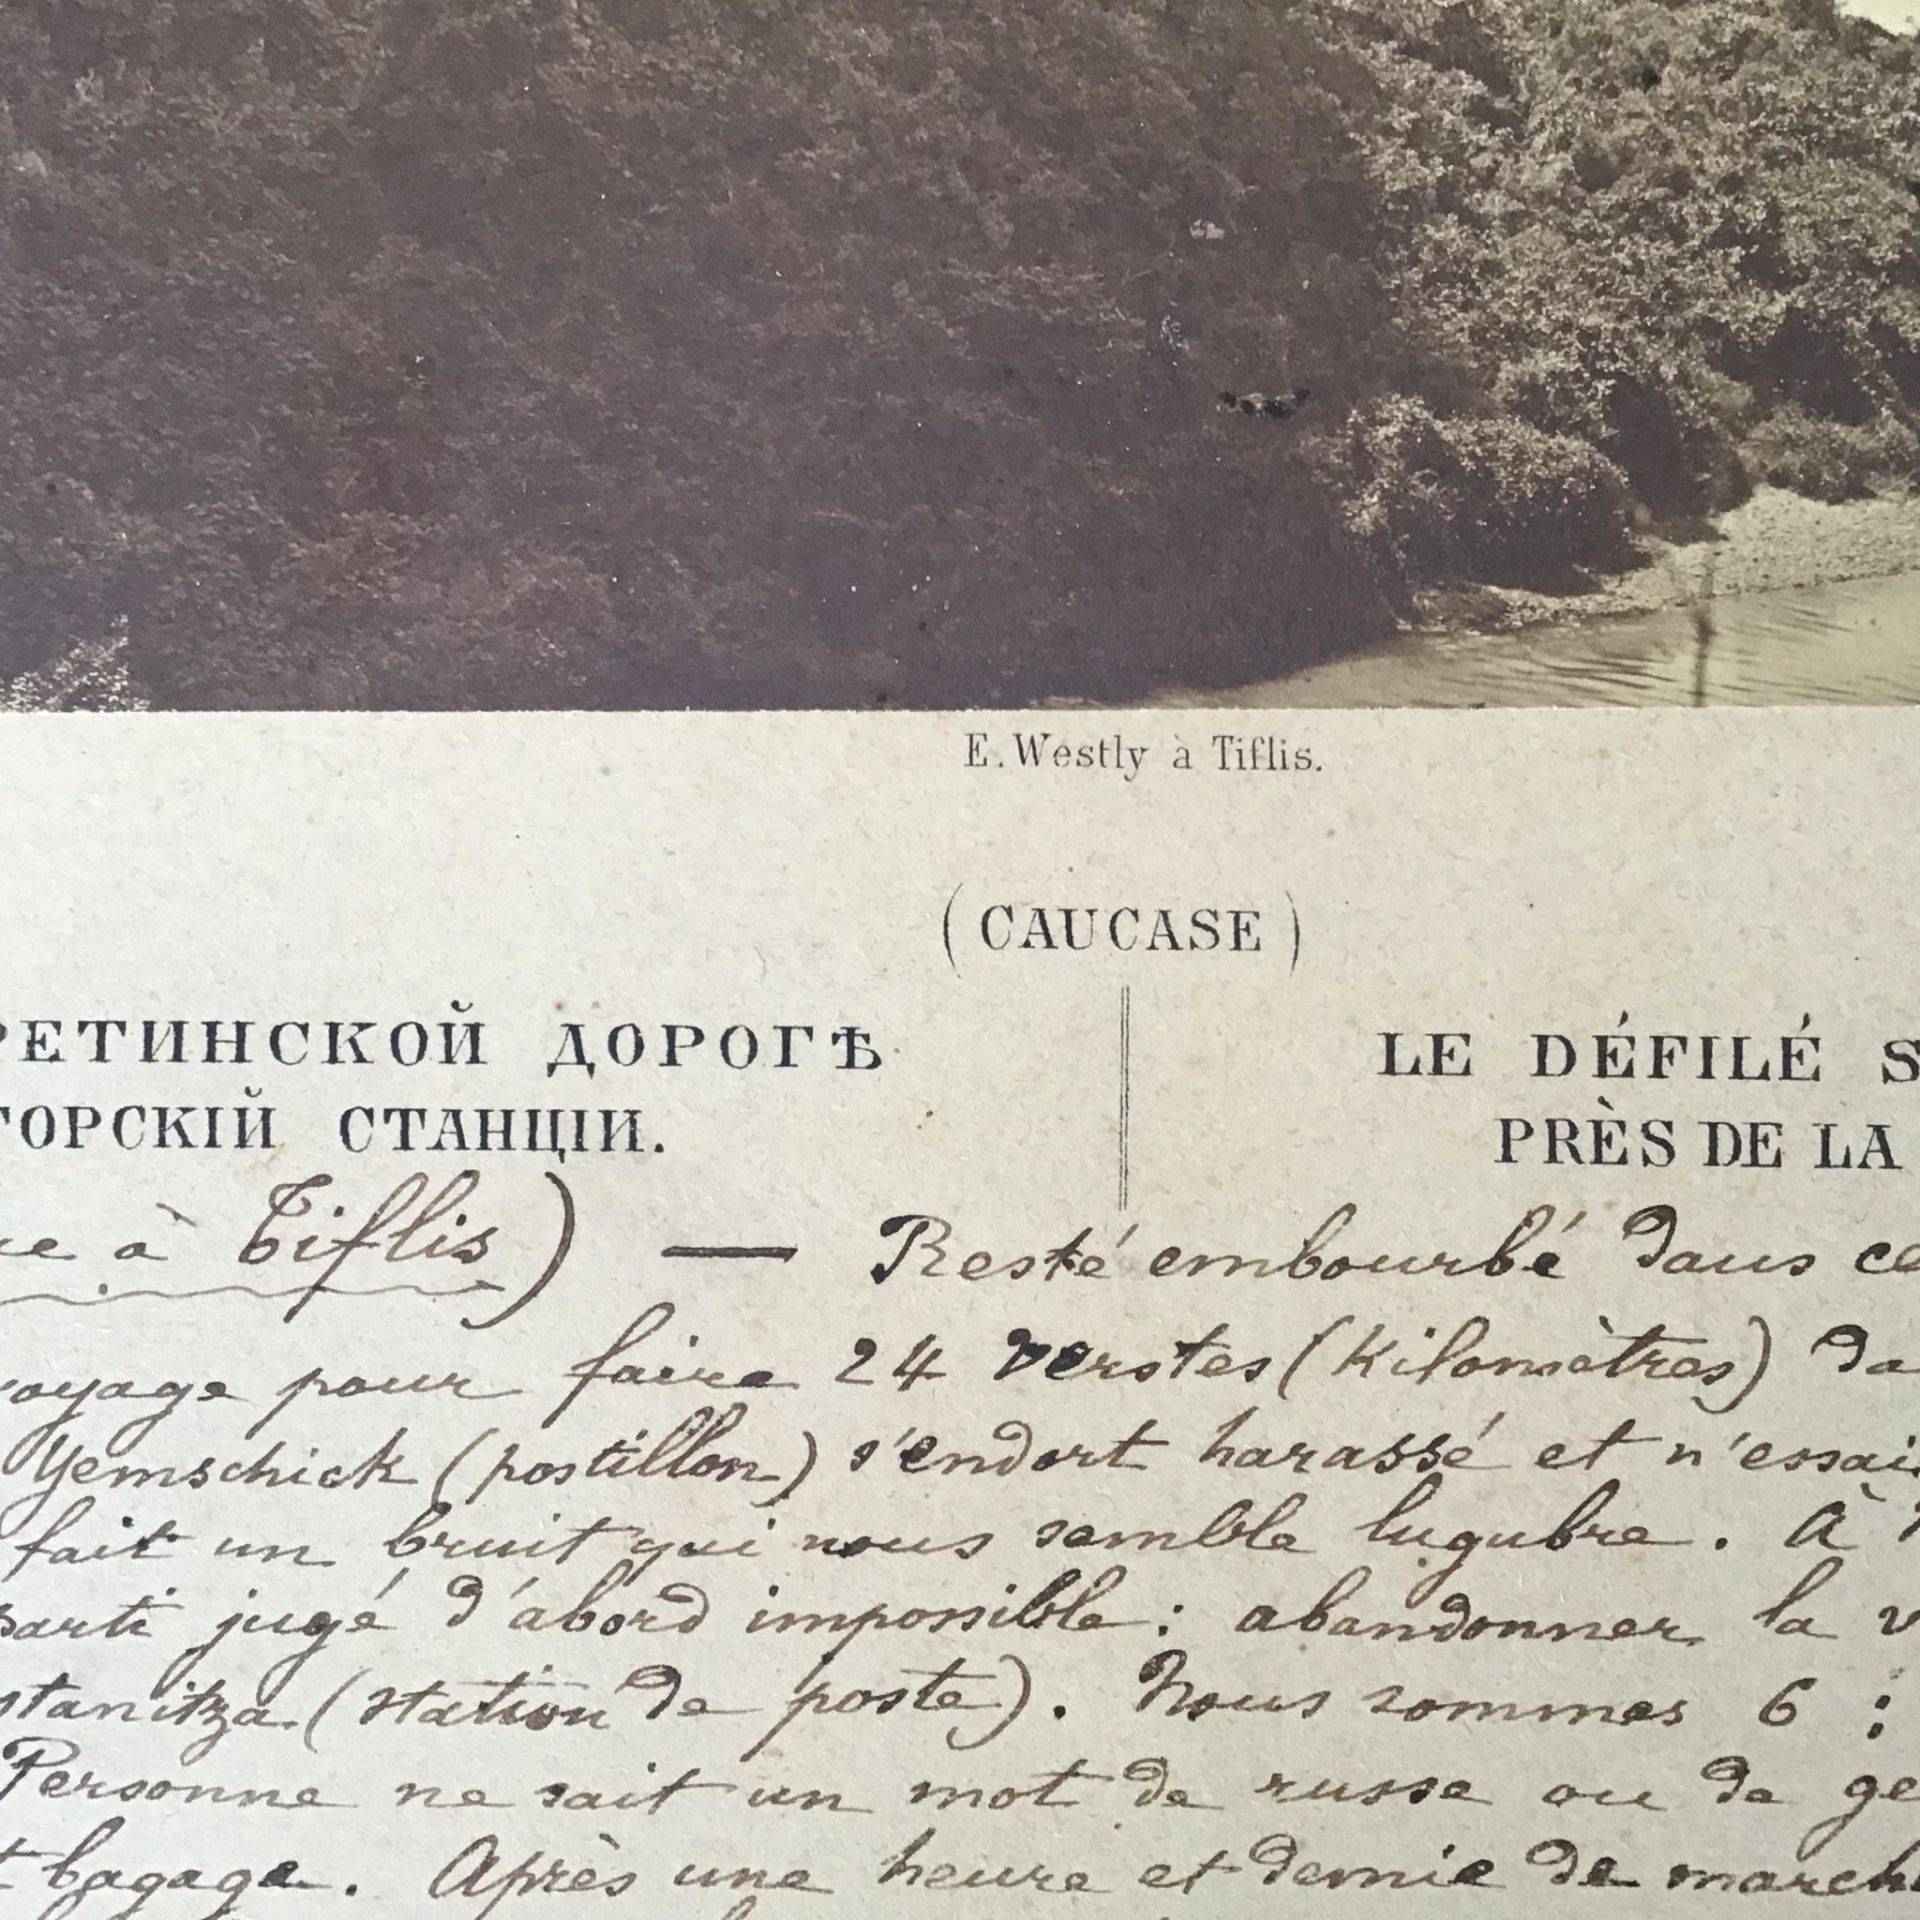 E. Westly à Tiflis.
(CAUCASE)
РЕТИНСКОЙ ДОРОГѢ
ГОРСКІЙ СТАНЦІИ.
LE DÉFILÉ S
PRÈS DE LA
à Tiflis) — Resté embourbé dans ce
voyage pour faire 24 verstes (Kilomètres) da
Yemschick (postillon) s'endort harassé et n'essai
fait un bruit qui nous semble lugubre. À
parti jugé d'abord impossible : abandonner la v
stanitza (station de poste). Nous sommes 6 :
Personne ne sait un mot de russe ou de ge
t bagage. Après une heure et demie de march